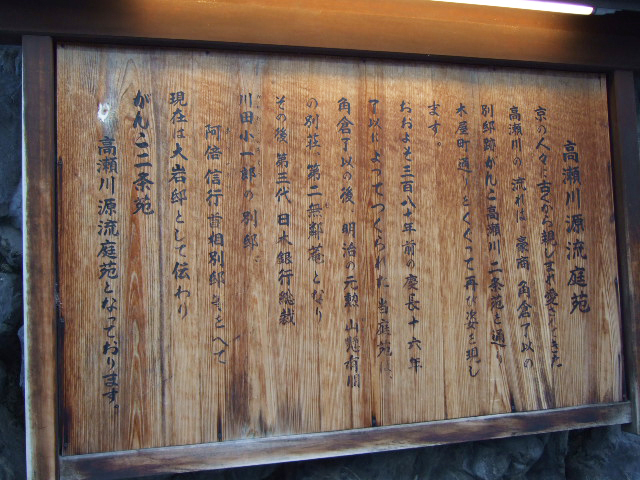 高瀬川源流庭苑
京の人々に古くから親しまれ愛されてきた
高瀬川の流れは、豪商 角倉了以の
別邸跡がんこ高瀬川 二条苑を通り
木屋町通りをくぐって再び姿を現し
ます。
おおよそ三百八十年前の慶長十六年
了以によってつくられた当庭苑は、
角倉了以の後 明治の元勲 山懸有朋
の別荘 第二無鄰菴となり
その後 第三代日本銀行総裁
川田小一郎の別邸
阿倍信行首相別邸をへて
現在は大岩邸として伝わり
がんこ二条苑
高瀬川源流庭苑となっております。